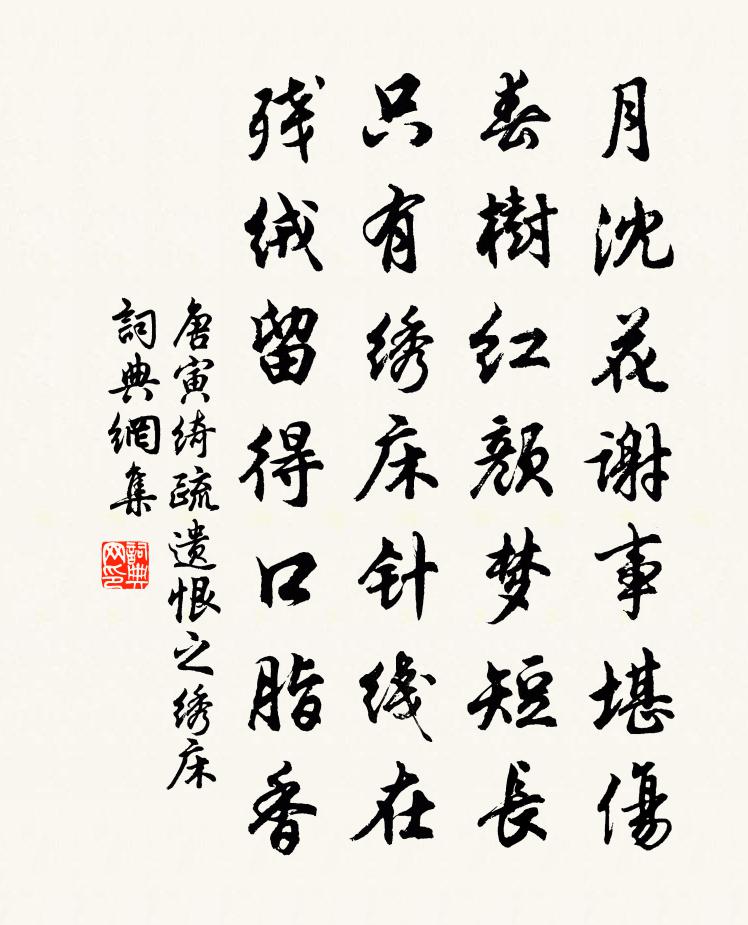 月沈花謝事堪傷
春樹红颜梦短長
只有绣床针线在
残绒留得口脂香
唐寅绮疏遗恨之绣床
詞典網集
詞典网印